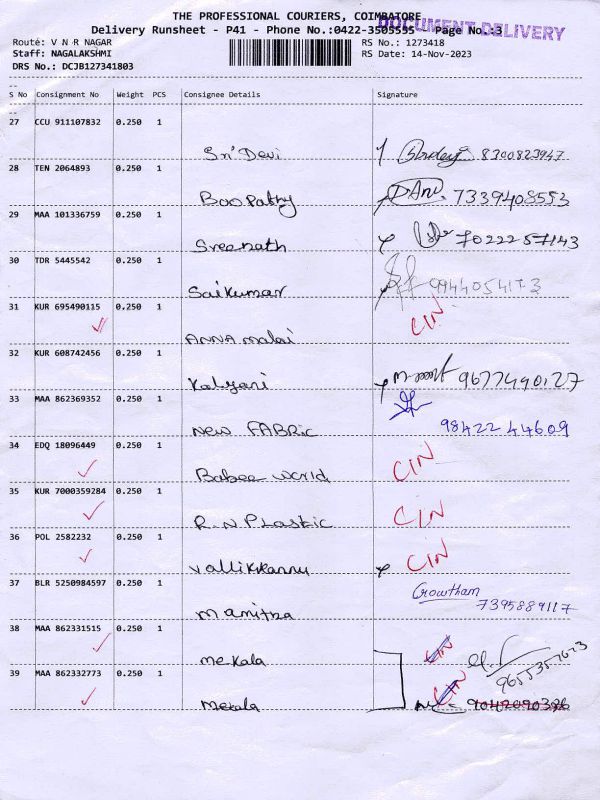 THE PROFESSIONAL COURIERS, COIMBATORE
DOCUMENT DELIVERY
Delivery Runsheet - P41 - Phone No.:0422-3505555 Page No.:3
Route: V N R NAGAR RS No.: 1273418
Staff: NAGALAKSHMI RS Date: 14-Nov-2023
DRS No.: DCJB127341803
S No Consignment No Weight PCS Consignee Details Signature
27 CCU 911107832 0.250 1
Sri Devi 8300823947
28 TEN 2064893 0.250 1
Boopathy DAni 7339408553
29 MAA 101336759 0.250 1
Sreenath 7022257143
30 TDR 5445542 0.250 1
Saikumar 9944054173
31 KUR 695490115 0.250 1
ANNA malai CIN
32 KUR 608742456 0.250 1
Kalyani 9677490127
33 MAA 862369352 0.250 1
New FABRic 9842244609
34 EDQ 18096449 0.250 1
Babee world CIN
35 KUR 7000359284 0.250 1
R.N PLastic CIN
36 POL 2582232 0.250 1
vallikkannu CIN
37 BLR 5250984597 0.250 1
Gowtham
mamitra 7395889117
38 MAA 862331515 0.250 1
mekala CIN 9655357623
39 MAA 862332773 0.250 1
mekala CIN